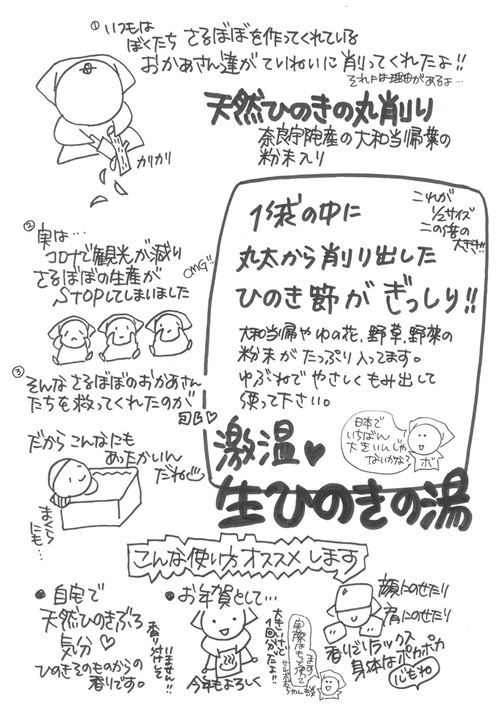 ① いつもは
ぼくたち さるぼぼを作ってくれている
おかあさん達がていねいに削ってくれたよ!!
それには理由があるよ…
カリカリ
天然ひのきの丸削り
奈良宇陀産の大和当帰葉の
粉末入り
これが
1/2サイズ
この倍の
大きさ!!
1袋の中に
丸太から削り出した
ひのき節がぎっしり!!
大和当帰やゆの花、野草、野菜の
粉末がたっぷり入ってます。
ゆぶねでやさしくもみ出して
使って下さい。
日本で
いちばん
大きいんじゃ
ないかな?
ボ
② 実は…
コロナで観光が減り
さるぼぼの生産が
STOPしてしまいました
OMG!!
③ そんなさるぼぼのおかあさん
たちを救ってくれたのが
だからこんなにも
あったかいん
だね
まくら
にも…
激温♥
生ひのきの湯
こんな使い方オススメします
●自宅で
天然ひのきぶろ
気分♡
ひのきそのものからの
香りです。
香り付けは
いません!!
●お年賀として…
今年もよろしく
大きいけど
1回分だよ!!
顔にのせたり
肩にのせたり
香りでリラックス
身体はポカポカ
心もね